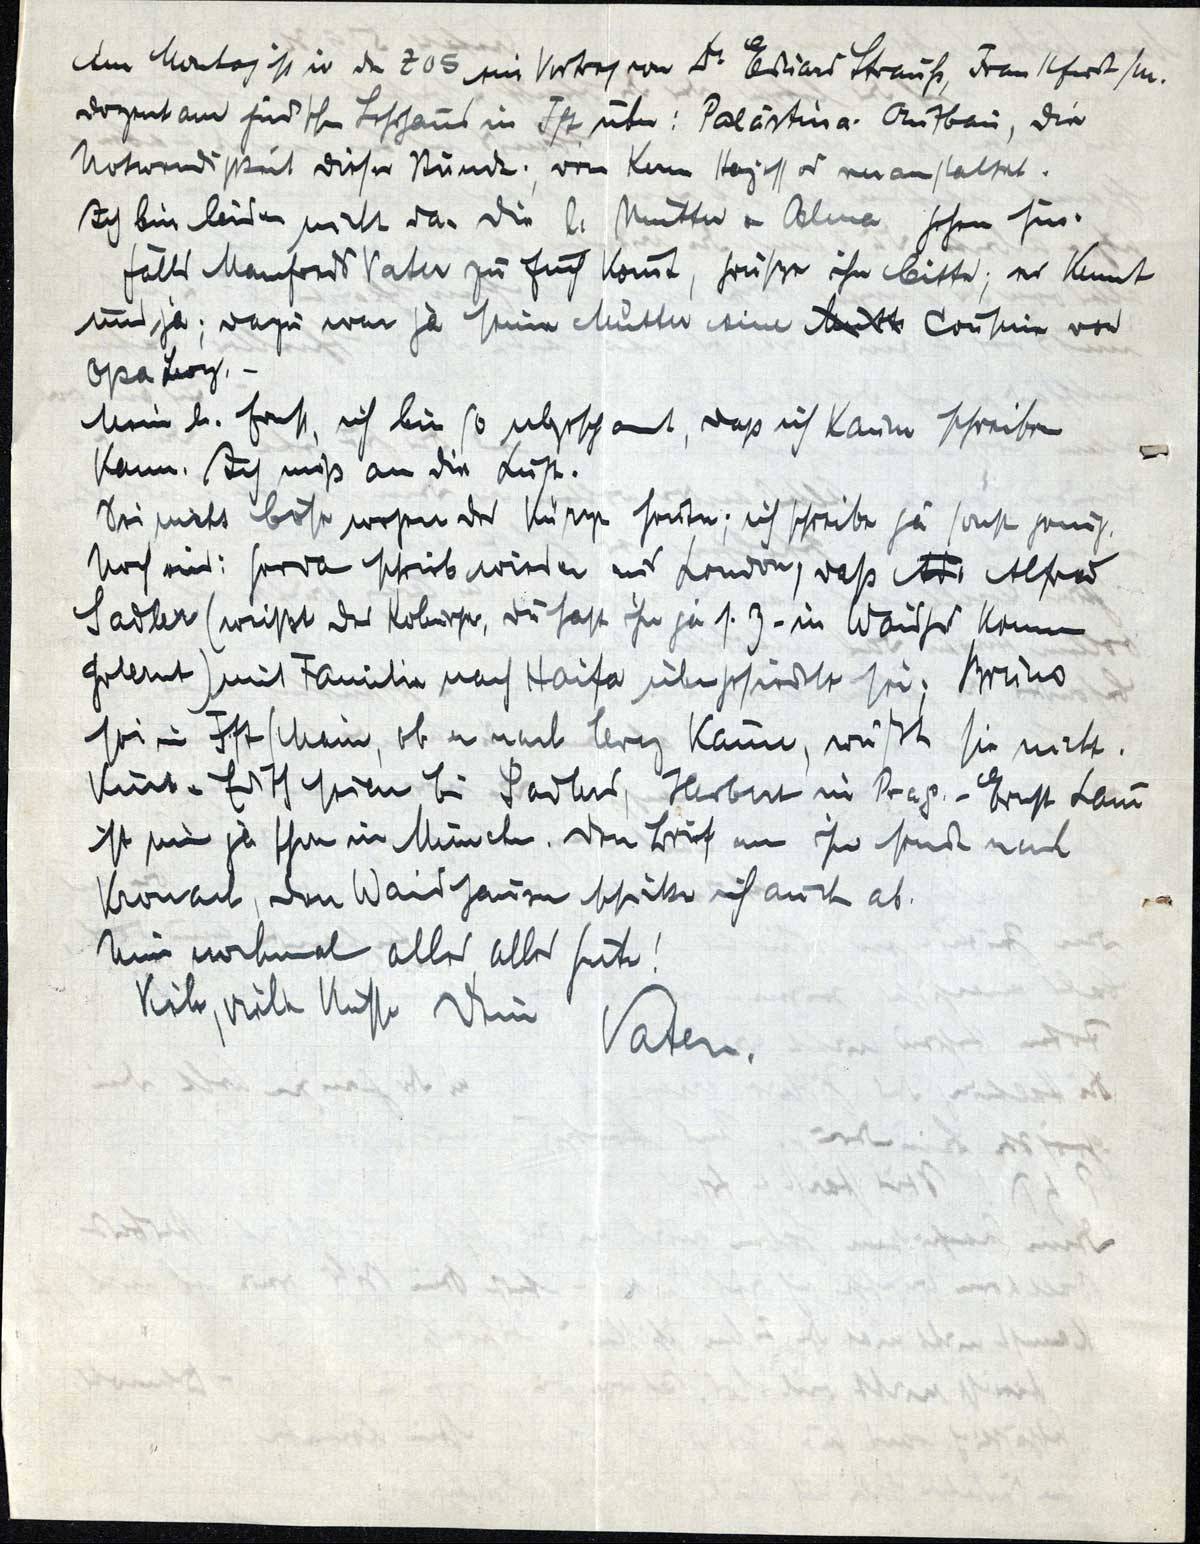 Am Montag ist in der ZOS ein Vortrag von Dr. Eduard Strauß, Frankfurt/M.
Dozent am jüdischen Lehrhaus in Fft über: Palästina-Aufbau, die
Notwendigkeit dieser Stunde., von Keren Hajessod veranstaltet.
Ich bin leider nicht da. Die l. Mutter u Alma gehen hin.
Falls Manfreds Vater zu Euch kommt, grüße ihn bitte; er kennt
uns ja; dazu war ja seine Mutter eine Cousine von
Opa
Mein l. Ernst, ich bin so abgespannt, daß ich kaum schreiben
kann. Ich muß an die Luft.
Sei nicht böse wegen der Kürze heute; ich schreibe ja sonst genug.
Noch eins: Gerda schrieb wieder aus London, daß Alfred
Sadler (weißt der Koburger, Du hast ihn ja s. Z. in Waidhs kennen
gelernt) mit Familie nach Haifa übergesiedelt sei; Bruno
sei in Fft/Main, ob er nach Erez käme, wüßte sie nicht.
Kurt u Edith seien bei Sadlers, Herbert in Prag. - Ernst Lam
ist nun ja schon in München. Den Brief an ihn sende nach
Kronach, den Waidhausen schicke ich auch ab.
Nun nochmal alles, alles Gute!
Viele, viele Küsse Dein Vater.